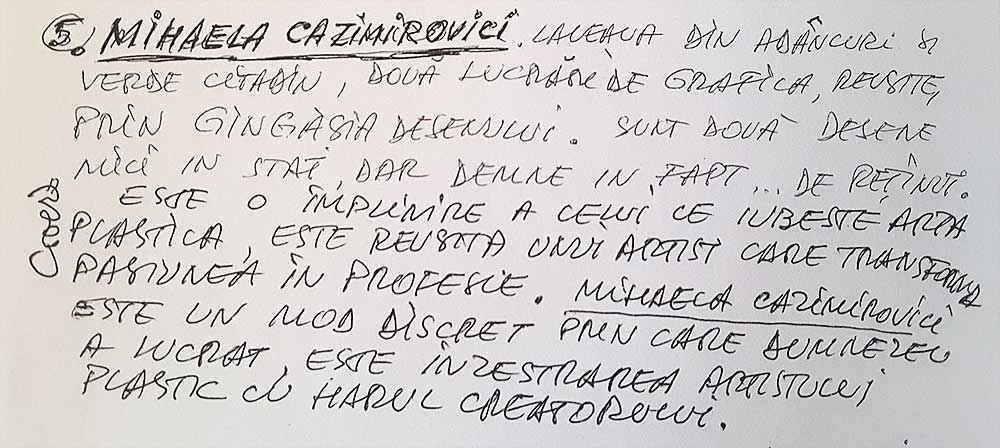 5. MIHAELA CAZIMIROVICI. DIN ADÂNCURI SI
VERDE CITADIN, DOUĂ LUCRĂRI DE GRAFICA, REUSITE,
PRIN GINGASIA DESENULUI. SUNT DOUĂ DESENE
MICI IN STAT, DAR DEMNE IN FAPT... DE REȚINUT.
ESTE O ÎMPLINIRE A CELUI CE IUBESTE ARTA
PLASTICA, ESTE REUSITA UNUI ARTIST CARE TRANSFORMA
PASIUNEA ÎN PROFESIE. MIHAELA CAZIMIROVICI
ESTE UN MOD DISCRET PRIN CARE DUMNEZEU
A LUCRAT, ESTE ÎNZESTRAREA ARTISTULUI
PLASTIC CU HARUL CREATORULUI.